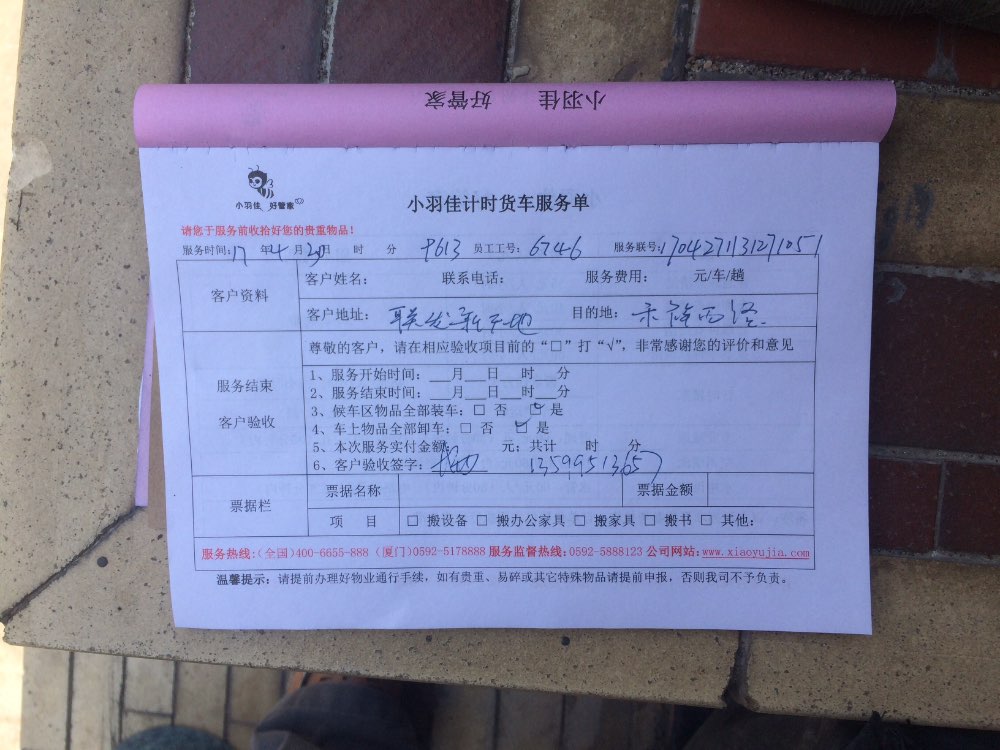 小羽佳 好管家
小羽佳 好管家
小羽佳计时货车服务单
请您于服务前收拾好您的贵重物品！
服务时间: 17 年 4 月 日 时 分 9613 员工工号: 6746 服务联号: 1704271131271051
客户资料
客户姓名: 联系电话: 服务费用: 元/车/趟
客户地址: 联发新天地 目的地:
服务结束
客户验收
尊敬的客户，请在相应验收项目前的“□”打“√”，非常感谢您的评价和意见
1、服务开始时间: ___月___日___时___分
2、服务结束时间: ___月___日___时___分
3、候车区物品全部装车: □ 否 ☑ 是
4、车上物品全部卸车: □ 否 ☑ 是
5、本次服务实付金额: 元; 共计 时 分
6、客户验收签字: 13599513657
票据栏
票据名称 票据金额
项 目 □ 搬设备 □ 搬办公家具 □ 搬家具 □ 搬书 □ 其他:
服务热线:(全国)400-6655-888 (厦门)0592-5178888 服务监督热线:0592-5888123 公司网站:www.xiaoyujia.com
温馨提示: 请提前办理好物业通行手续，如有贵重、易碎或其它特殊物品请提前申报，否则我司不予负责。